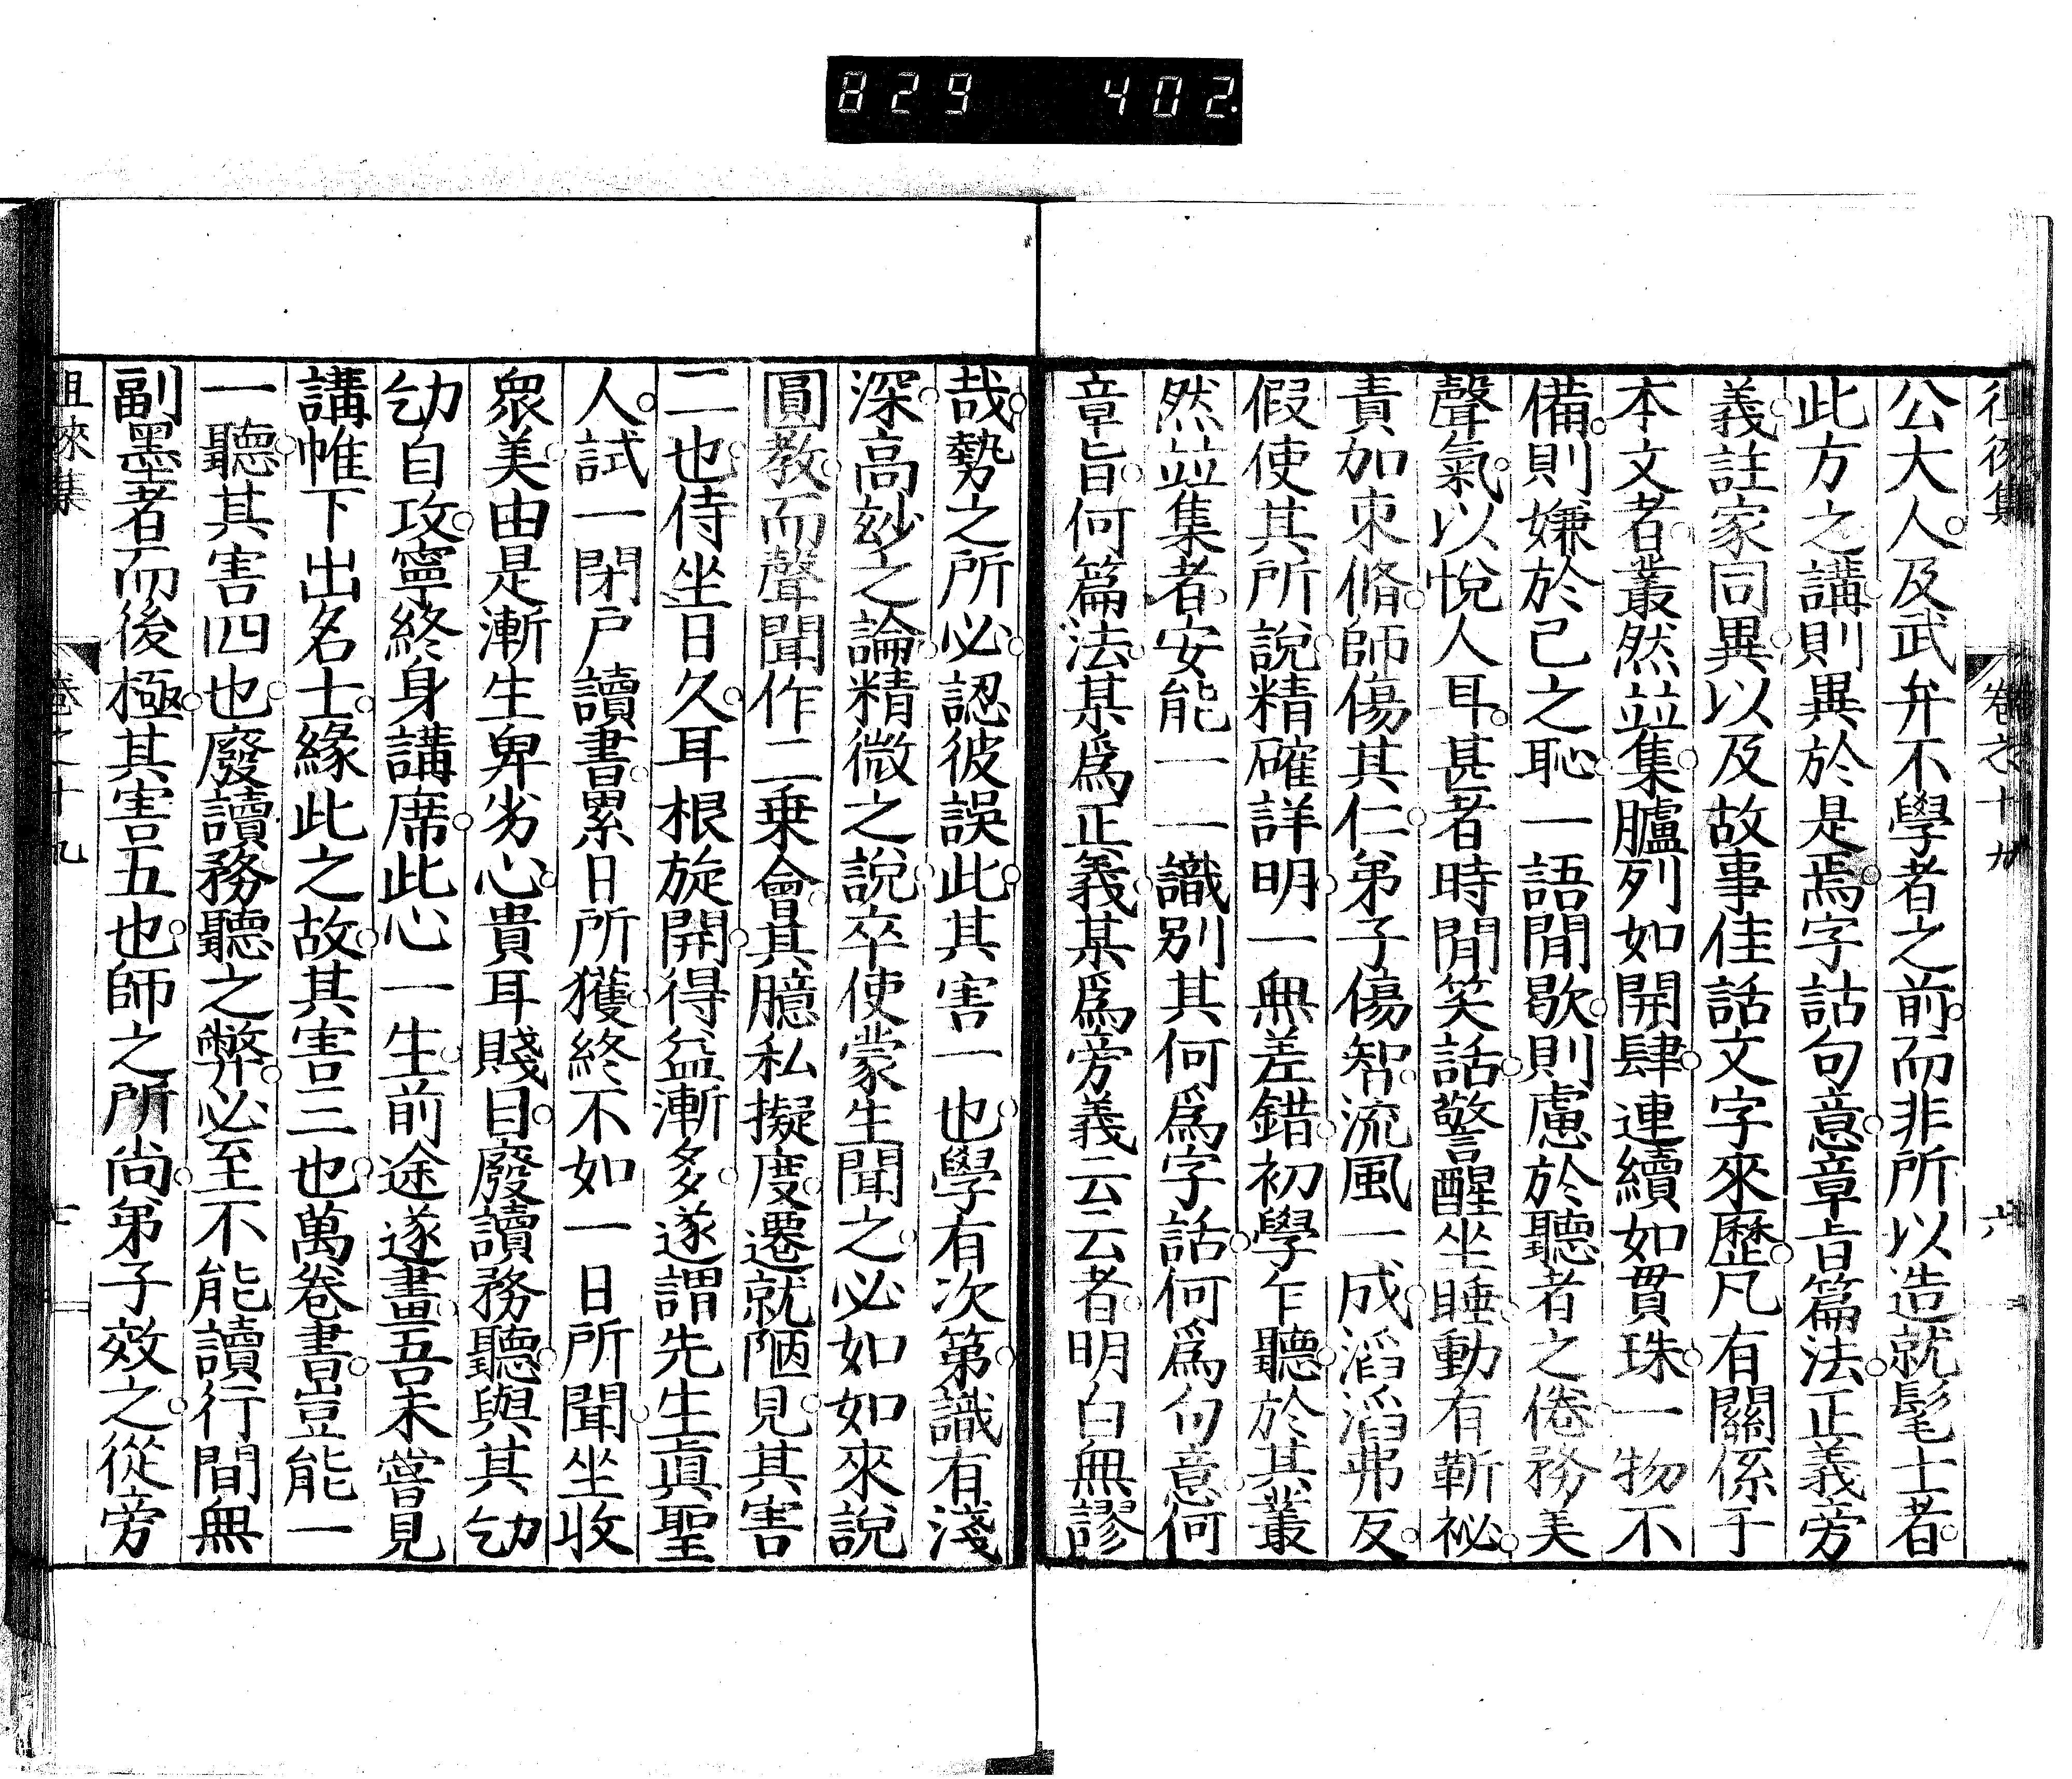 829 402
公大人及武弁不學者之前而非所以造就髦士者
此方之講則異於是焉字詁句意章旨篇法正義旁
義註家同異以及故事佳話文字來歷凡有關係于
本文者叢然並集臚列如開肆連續如貫珠一物不
備則嫌於己之恥一語閒歇則慮於聽者之倦務美
聲氣以悅人耳甚者時閒笑話警醒坐睡動有靳祕
責加束脩師傷其仁弟子傷智流風一成滔滔弗反
假使其所說精確詳明一無差錯初學乍聽於其叢
然並集者安能一一識別其何爲字話何爲句意何
章旨何篇法某爲正義某爲旁義云云者明白無謬
哉勢之所必認彼誤此其害一也學有次第識有淺
深高玅之論精微之說卒使蒙生聞之必如如來說
圓教而聲聞作二乗會其臆私擬度遷就陋見其害
二也侍坐日久耳根旋開得益漸多遂謂先生眞聖
人試一閉戶讀書累日所獲終不如一日所聞坐收
衆美由是漸生卑劣心貴耳賤目廢讀務聽與其劬
劬自攻寧終身講席此心一生前途遂畫吾未嘗見
講帷下出名士緣此之故其害三也萬卷書豈能一
一聽其害四也廢讀務聽之弊必至不能讀行間無
副墨者而後極其害五也師之所尚弟子效之從旁
徂徠集 卷之十九 七